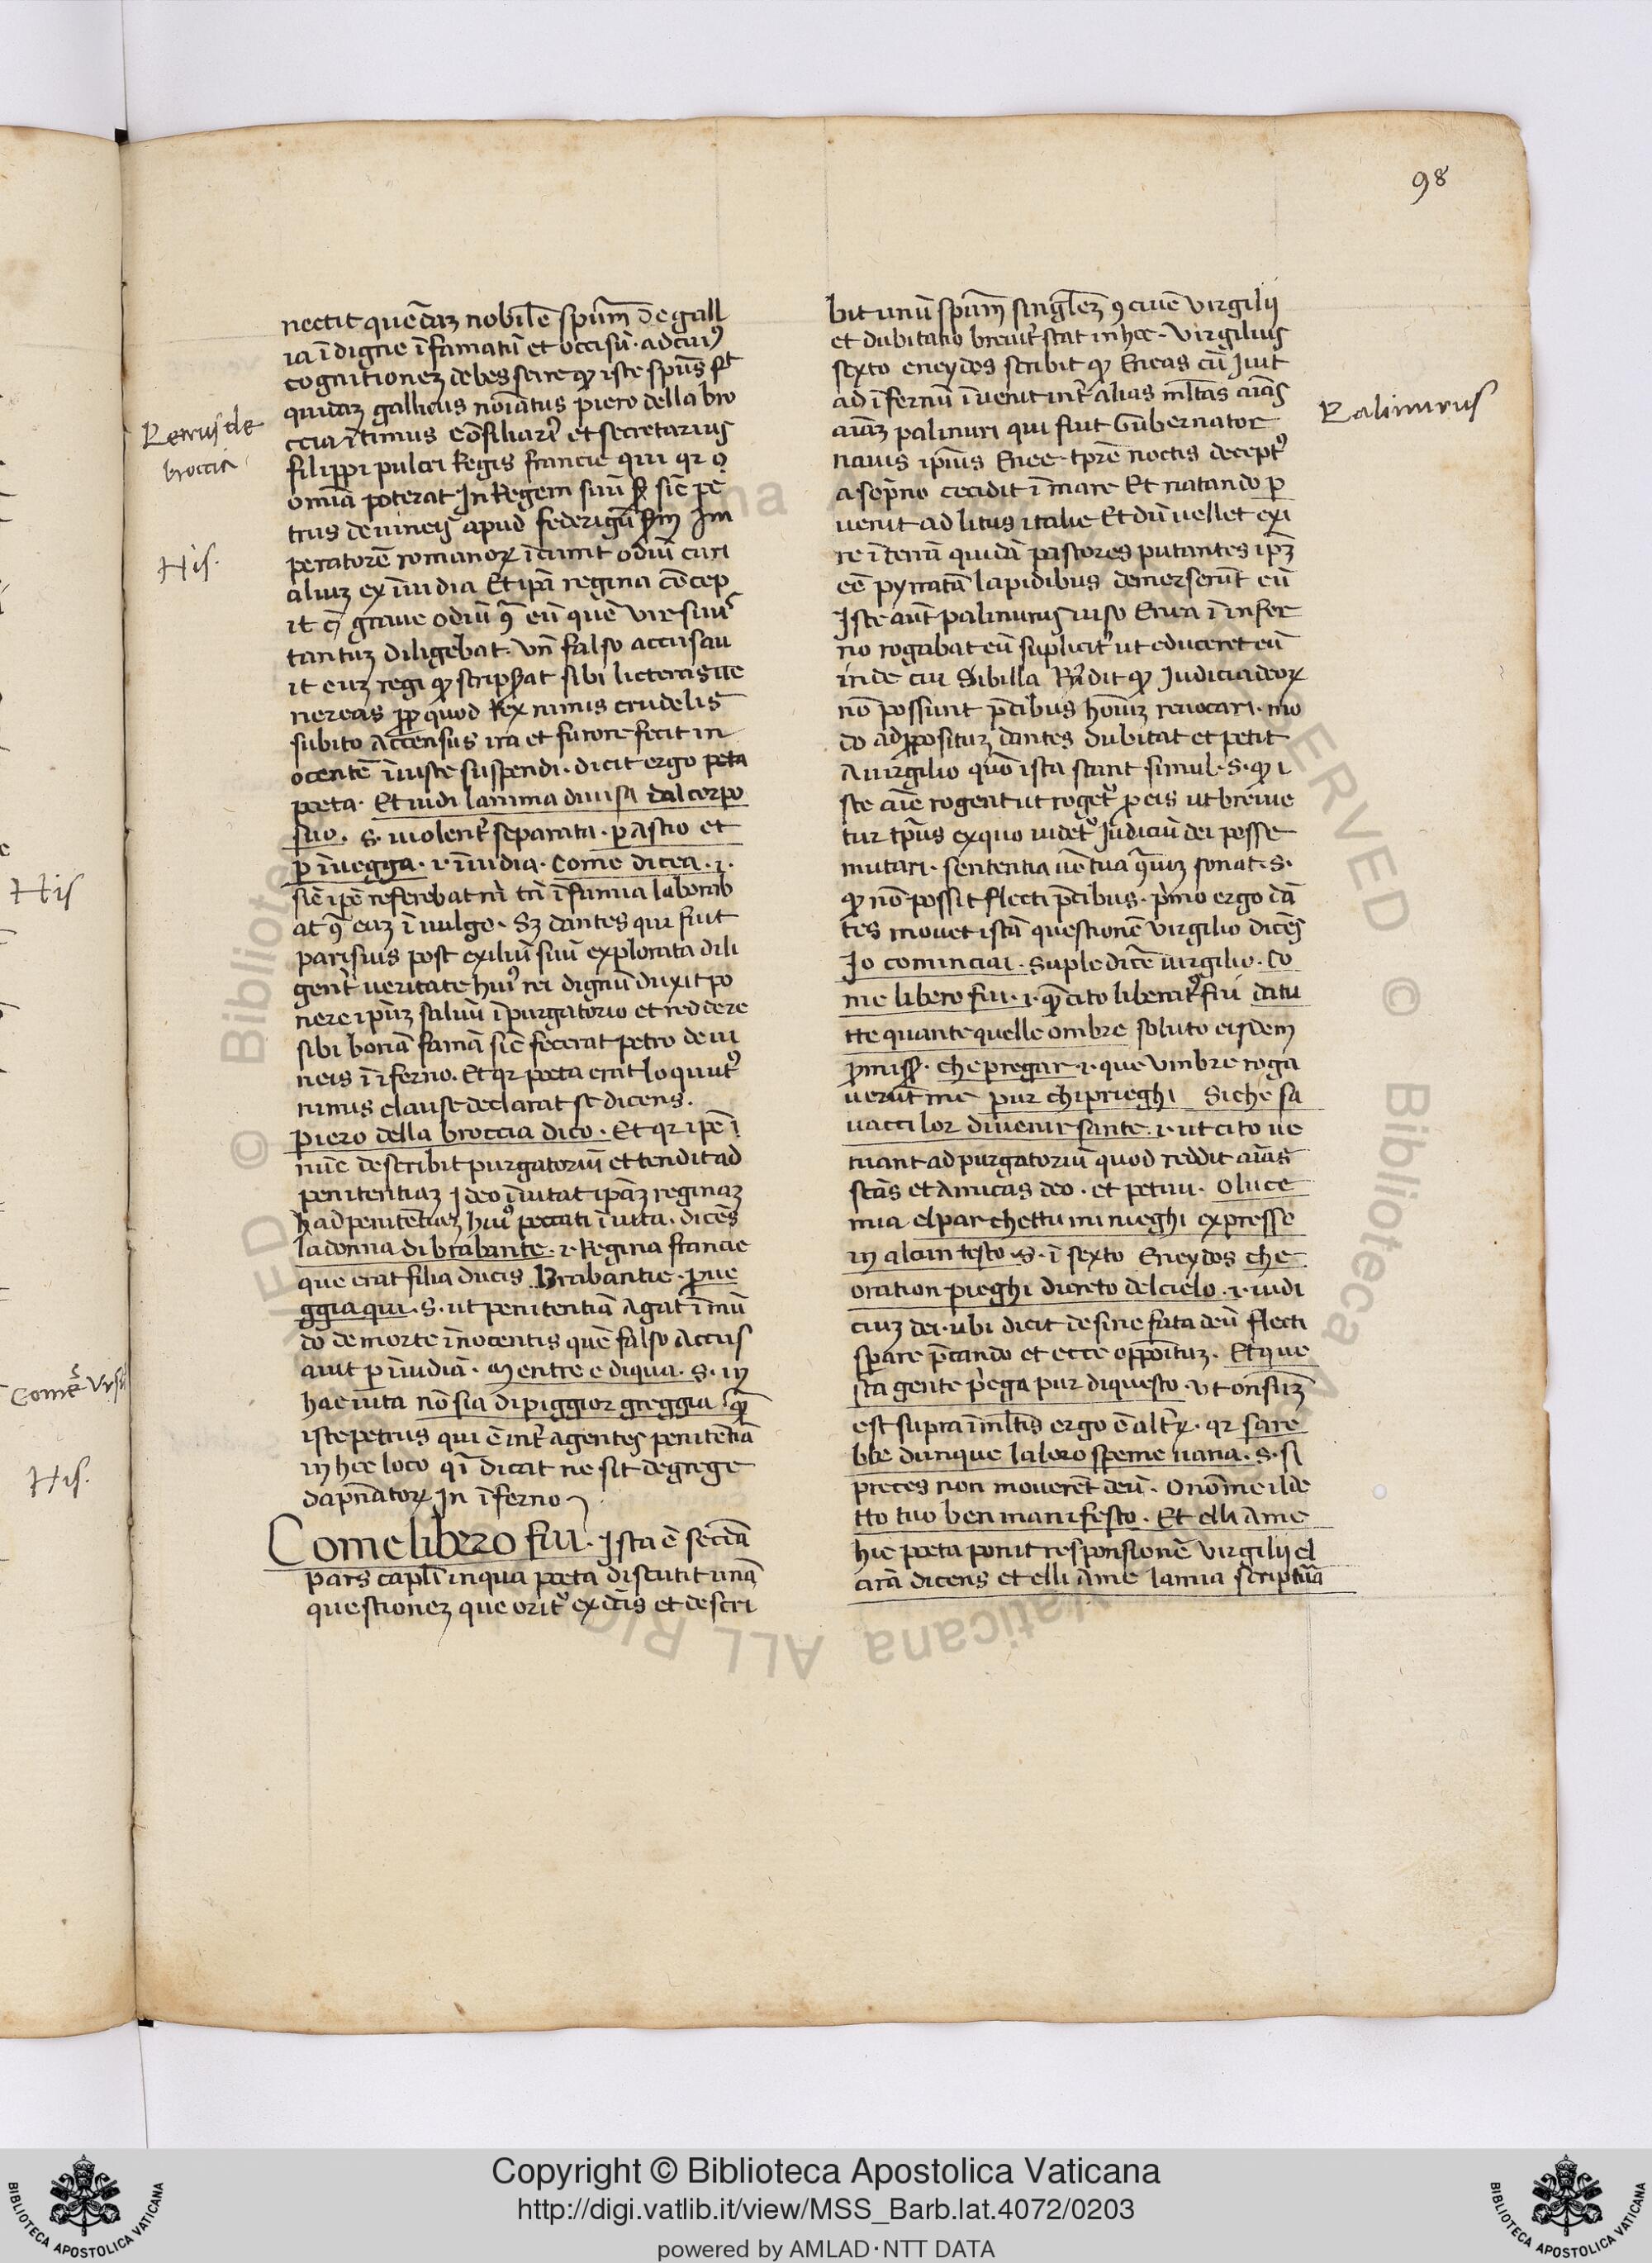 98
nectit quēdaz nobilē spūm de gall
ia īdigne īfamatū et occisū. ad cuiꝰ
cognitionez debes scire ꝙ iste spūs fꝫ
quidaz gallicus noīatus piero della bro
ccia ītimus cōsiliariꝰ et secretarius
filippi pulcri Regis francie qui qꝛ
omīa poterat In Regem suū sič pe
trus de vineis apud federigū Im
peratorē romanoꝝ īcurrit odiū curi
aliuz ex īuidia Et ipā regina cōcep
it grave odiū ꝯ eū quē vir suus
tantuz diligebat. vn̄ falso accusau
it euz regi ꝙ scripserat sibi licteras ue
nereas ꝓp quod Rex nimis crudelis
subito accensus ira et furore fecit in
ocentē īiuste suspendi. dicit ergo peta
poeta. Et uidi lamma diuisa dal corpo
suo. s. uiolent̄ separata. p astio et
p īueggia. i. īuidia. Come dicea. i.
sič ipē referebat m̄ tn̄ īfamia laborab
at ꝯ euz ī uulgo. Sz dantes qui fuit
parisius post exiliū suū explorata dili
gent̄ ueritate huiꝰ rei dignū duxit po
nere ipūz saluū ī purgatorio et reddere
sibi bonā famā sič fecerat petro de ui
neis ī īferno. Et qꝛ poeta erat loquutꝰ
nimis clause declarat se dicens.
piero della broccia dico. Et qꝛ ipē ī
nūc describit purgatoriū et tendit ad
penitentiaz Ideo īuitat ipāz reginaz
ad penitētiaz huiꝰ peccati ī uita. dicēs
la donna di brabante. i. Regina francie
que erat filia ducis Brabantie. proue
ggia qui. s. ut penitentiā agat ī mū
do de morte īnocentis quē falso accus
auit p īuidiā. Mentre e di qua. s. in
hac uita nō sia di piggior greggia
iste petrus qui ē int̄ agentes penitētiā
in hoc loco qī dicat ne sit de grege
dapnatoꝝ In īferno
Come libero fui. Ista ē secūda
pars capli in qua poeta discutit unā
questionez que oritꝰ ex dc̄is et descri
bit unū spūm singlēz ꝯ ciuē virgilij
et dubitatio breuit̄ stat in hoc. Virgilius
sexto eneydos scribit ꝙ Eneas cū Iuit
ad īfernū īuenit int̄ alias mltas aīas
aīaz palinuri qui fuit Gubernator
nauis ipīus Enee. tpre noctis deceptꝰ
a sopno cecidit ī mare Et natando p
uenit ad litus italie Et dū uellet exi
re ī terrā quidā pastores putantes ipz̄
eē pyrratā lapidibus demerserūt eū
Iste aūt palinurus uiso Enea ī infer
no rogabat eū suplicit̄ ut educeret eū
inde cui Sibilla Rn̄dit ꝙ Iudicia deoꝝ
nō possunt p̄cibus hoīuz reuocari. mo
do ad ꝓpositūz dantes dubitat et petit
a uirgilio quō ista stant simul. s. ꝙ i
ste aīe rogent ut rogetꝰ ꝓ eis ut breuie
tur tp̄us ex quo uidetꝰ Iudiciū dei posse
mutari. sententia uē tua ꝯriuz sonat. s.
ꝙ nō possit flecti p̄cibus. p̄mo ergo dā
tes mouet istā questionē Virgilio dicēs
Io cominciai. suple dicē uirgilio. Co
me libero fui. i. ꝙ cito liberatꝰ fui da tu
tte quante quelle ombre soluto eisdem
promiss. che pregar. i. que Vmbre roga
uerūt me pur chi prieghi Siche sa
uacci lor diuenir sante. i. ut cito ue
niant ad purgatoriū quod reddit aīas
scās et amicas deo. et petiui. O luce
mia el par che ttu mi nieghi expresse
in alcun testo. s. ī sexto Eneydos che
oration pieghi dicreto del cielo. i. iudi
ciuz dei. ubi dicit desine fata deū flecti
sperare p̄cando et ecce oppoītuz. Et que
sta gente prega pur di questo. Vt onsuz̄
est supra ī mltis ergo ē altꝝ. qꝛ sare
bbe dunque la loro speme uana. s. si
preces non mouerēt deū. O nō me il de
tto tuo ben manifesto. Et elli a me
hic poeta ponit responsionē virgilij cl
arā dicens et elli a me la mia scriptūa
Petrus de
broccia.
His.
Palinurus
His
Comes Vrsi
His.
Copyright © Biblioteca Apostolica Vaticana
http://digi.vatlib.it/view/MSS_Barb.lat.4072/0203
powered by AMLAD·NTT DATA
BIBLIOTECA APOSTOLICA VATICANA
BIBLIOTECA APOSTOLICA VATICANA